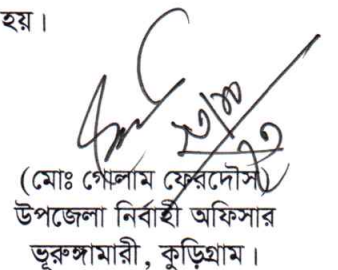 হয়।
(মোঃ গোলাম ফেরদৌস)
উপজেলা নির্বাহী অফিসার
ভূরুঙ্গামারী, কুড়িগ্রাম।